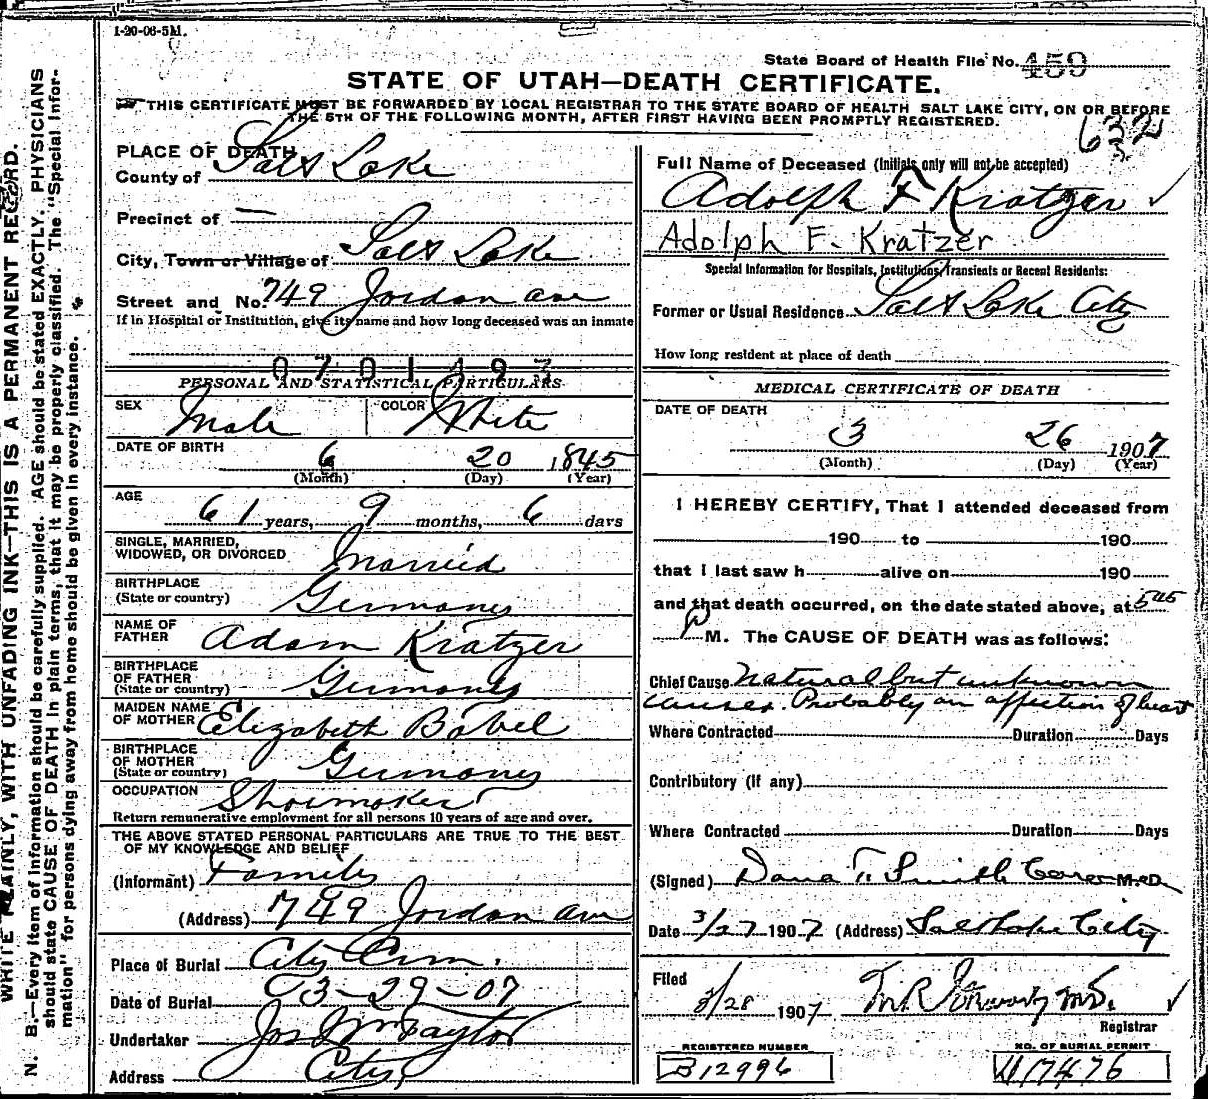 1-20-06-5M.
State Board of Health File No. 459
STATE OF UTAH—DEATH CERTIFICATE.
THIS CERTIFICATE MUST BE FORWARDED BY LOCAL REGISTRAR TO THE STATE BOARD OF HEALTH SALT LAKE CITY, ON OR BEFORE
THE 5TH OF THE FOLLOWING MONTH, AFTER FIRST HAVING BEEN PROMPTLY REGISTERED.
632
PLACE OF DEATH
County of Salt Lake
Precinct of —
City, Town or Village of Salt Lake
Street and No. 749 Jordan ave
If in Hospital or Institution, give its name and how long deceased was an inmate
0701493
PERSONAL AND STATISTICAL PARTICULARS
SEX Male COLOR White
DATE OF BIRTH
6 20 1845
(Month) (Day) (Year)
AGE
61 years, 9 months, 6 days
SINGLE, MARRIED,
WIDOWED, OR DIVORCED Married
BIRTHPLACE
(State or country) Germany
NAME OF
FATHER Adam Kratzer
BIRTHPLACE
OF FATHER
(State or country) Germany
MAIDEN NAME
OF MOTHER Elizabeth Babel
BIRTHPLACE
OF MOTHER
(State or country) Germany
OCCUPATION Shoemaker
Return remunerative employment for all persons 10 years of age and over.
THE ABOVE STATED PERSONAL PARTICULARS ARE TRUE TO THE BEST
OF MY KNOWLEDGE AND BELIEF
(Informant) Family
(Address) 749 Jordan ave
Place of Burial City Cem.
Date of Burial 3-29-07
Undertaker Jos Wm Taylor
Address City
Full Name of Deceased (Initials only will not be accepted)
Adolph F Kratzer
Adolph F. Kratzer
Special Information for Hospitals, Institutions, Transients or Recent Residents:
Former or Usual Residence Salt Lake City
How long resident at place of death
MEDICAL CERTIFICATE OF DEATH
DATE OF DEATH
3 26 1907
(Month) (Day) (Year)
I HEREBY CERTIFY, That I attended deceased from
190 to 190
that I last saw h alive on 190
and that death occurred, on the date stated above, at 545
P M. The CAUSE OF DEATH was as follows:
Chief Cause Natural but unknown
causes. Probably an affection of heart
Where Contracted Duration Days
Contributory (if any)
Where Contracted Duration Days
(Signed) Dana T. Smith M.D.
Date 3/27 1907 (Address) Salt Lake City
Filed
3/28 1907 M.D.
Registrar
REGISTERED NUMBER
B12996
NO. OF BURIAL PERMIT
17476
WRITE PLAINLY, WITH UNFADING INK—THIS IS A PERMANENT RECORD.
N. B.—Every item of information should be carefully supplied. AGE should be stated EXACTLY. PHYSICIANS
should state CAUSE OF DEATH in plain terms, that it may be properly classified. The "Special Infor-
mation" for persons dying away from home should be given in every instance.